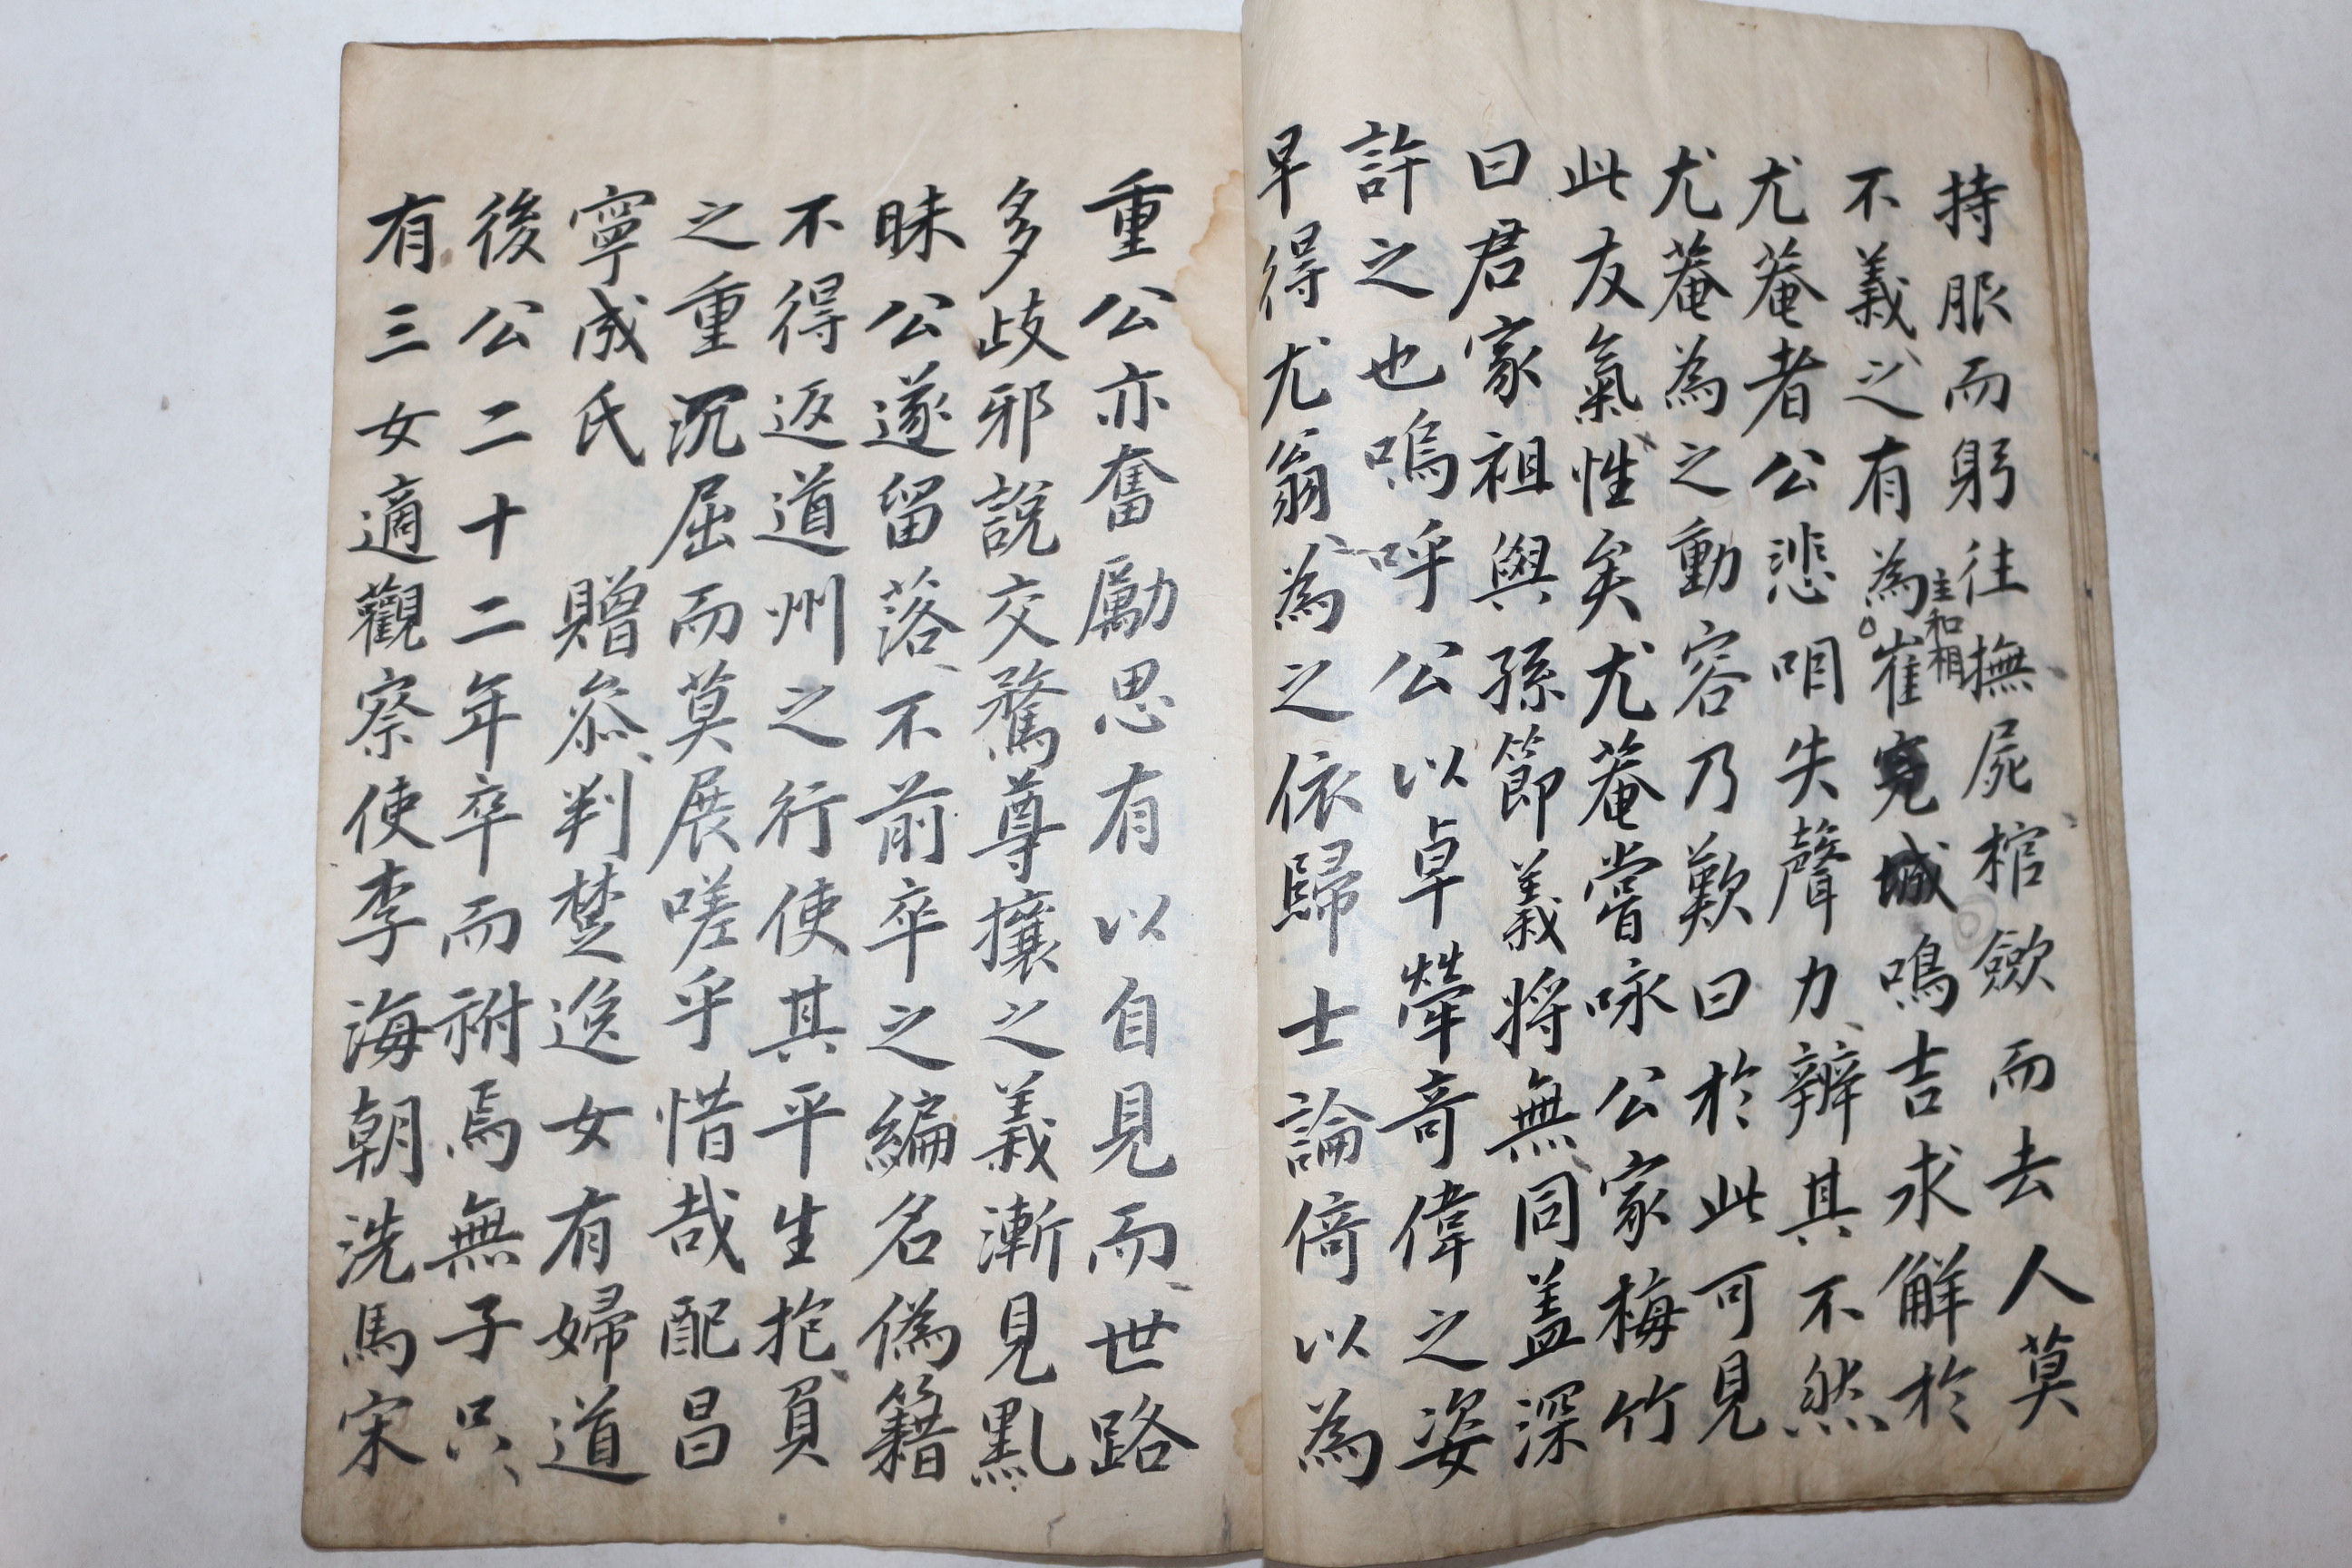 持服而躬往撫屍棺斂而去人莫
不義之有為崔完城鳴吉求解於
主和相
尤菴者公悲咽失聲力辨其不然
尤菴為之動容乃歎曰於此可見
此友氣性矣尤菴嘗咏公家梅竹
曰君家祖與孫節義將無同盖深
許之也嗚呼公以卓犖奇偉之姿
早得尤翁為之依歸士論倚以為
重公亦奮勵思有以自見而世路
多歧邪說交騖尊攘之義漸見點
昧公遂留落不前卒之編名偽籍
不得返道州之行使其平生抱負
之重沉屈而莫展嗟乎惜哉配昌
寧成氏 贈叅判楚逸女有婦道
後公二十二年卒而祔焉無子只
有三女適觀察使李海朝洗馬宋